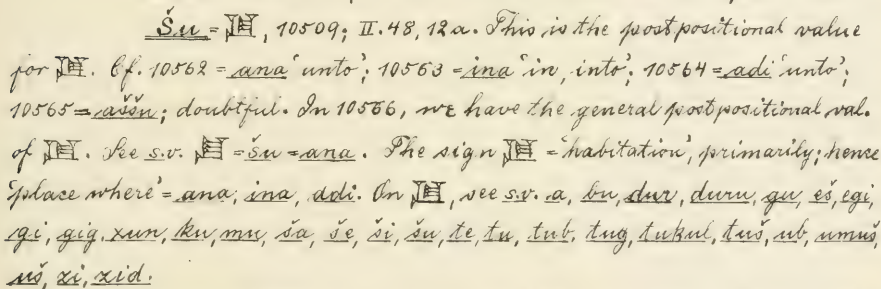 Šu = 𒆪, 10509; II. 48, 12a. This is the postpositional value
for 𒆪. Cf. 10562 = ana 'unto'; 10563 = ina 'in, into'; 10564 = adi 'unto';
10565 = aššu; doubtful. In 10566, we have the general postpositional val.
of 𒆪. See s.v. = šu = ana. The sign 𒆪 = 'habitation', primarily; hence
'place where' = ana, ina, adi. On 𒆪, see s.v. a, bu, dur, duru, gu, eš, egi,
gi, gig, xun, ku, mu, ša, še, ši, šu, te, tu, tub, tug, tukul, tuš, ub, umuš,
uš, zi, zid.